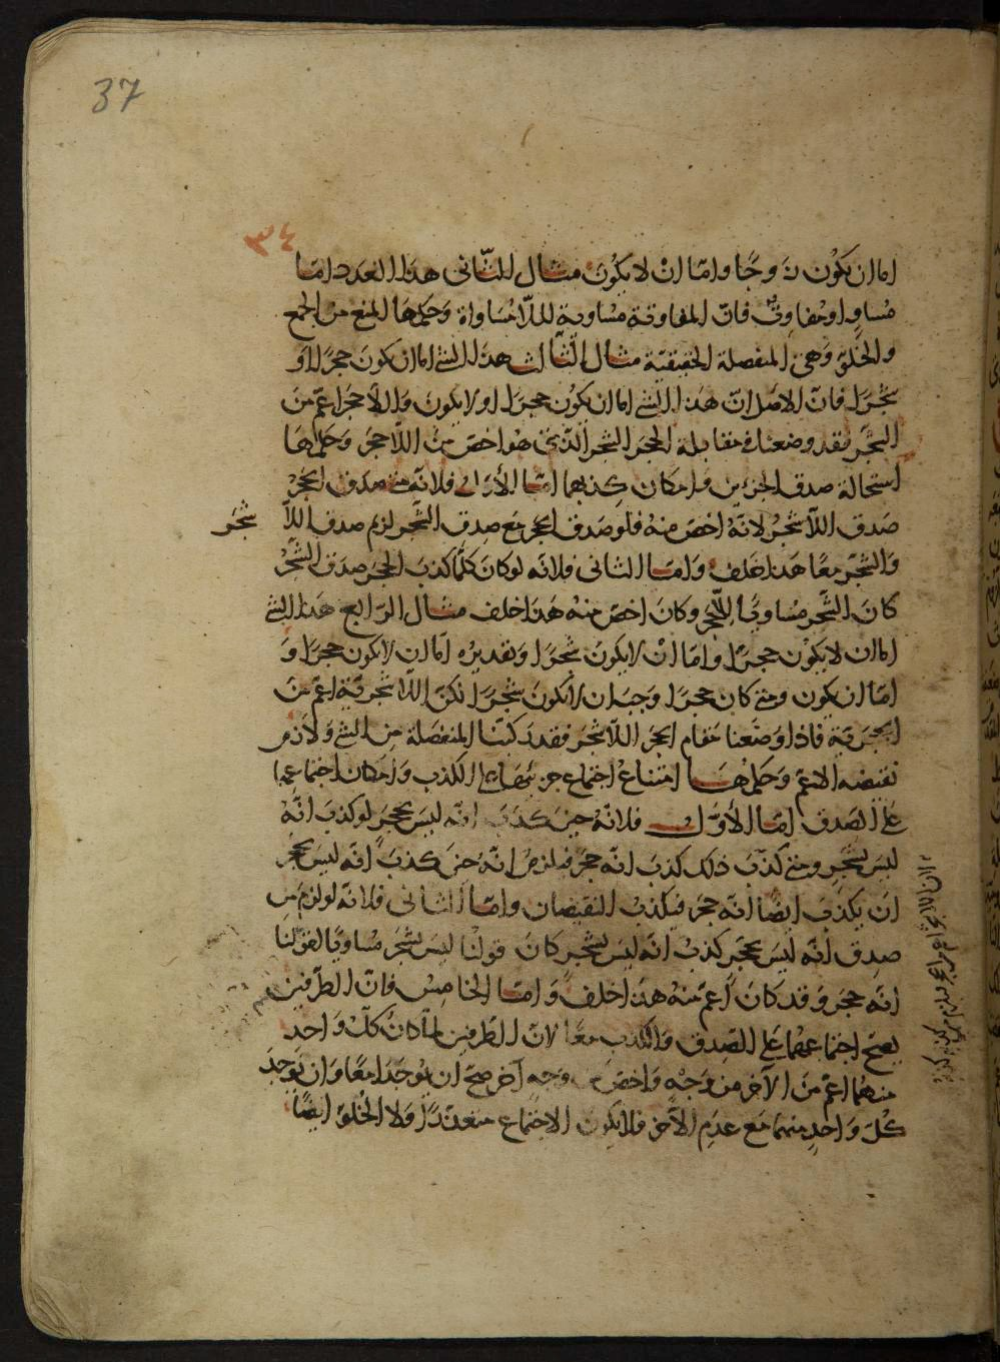 37
٣٤
اما ان يكون زوجا واما ان لا يكون مثال الثانى هذا العدد اما
مساو او متفاوت فان المفاوتة مساوية للامساواة وحكمها المنع من الجمع
والخلو وهى المنفصلة الحقيقية مثال الثالث هذا الشئ اما ان يكون حجرا او
شجرا فان الاصل ان هذا الشئ اما ان يكون حجرا او لا يكون واللاحجر اعم من
الشجر فقد وضعنا فى مقابلة الحجر الشجر الذى هو اخص من اللاحجر وحكمها
استحالة صدق الجزئين وامكان كذبهما اما الأول فلانه متى صدق الحجر
صدق اللاشجر لانه اخص منه فلو صدق الحجر مع صدق الشجر لزم صدق اللا شجر
والشجر معا هذا خلف واما الثانى فلانه لو كان كلما كذب الحجر صدق الشجر
كان الشجر مساويا للاحجر وكان اخص منه هذا خلف مثال الرابع هذا الشئ
اما ان لا يكون حجرا واما ان لا يكون شجرا وتقديره اما ان لا يكون حجرا و
اما ان يكون ومتى كان حجرا وجب ان لا يكون شجرا لكن اللاشجرية اعم من
الحجرية فاذا وضعنا مقام الحجر اللاشجر فقد ركبنا المنفصلة من الشئ ولازم
نقيضه الاعم وحكمها امتناع اجتماع جزئيها على الكذب وامكان اجتماعهما
على الصدق اما الأول فلانه حين كذب انه ليس بحجر لو كذب انه
ليس بشجر ومتى كذب ذلك كذب انه حجر فيلزم انه حين كذب انه ليس بحجر
ان يكذب ايضا انه حجر فيكذب النقيضان واما الثانى فلانه لو لزم من
صدق انه ليس بحجر كذب انه ليس بشجر كان قولنا ليس بشجر مساويا لقولنا
انه حجر وقد كان اعم منه هذا خلف واما الخامس فان الطرفين
يصح اجتماعهما على الصدق والكذب معا لان الطرفين لما كان كل واحد
منهما اعم من الآخر من وجه واخص من وجه آخر صح ان يوجدا معا وان يوجد
كل واحد منهما مع عدم الآخر فلا يكون الاجتماع متعذرا ولا الخلو ايضا